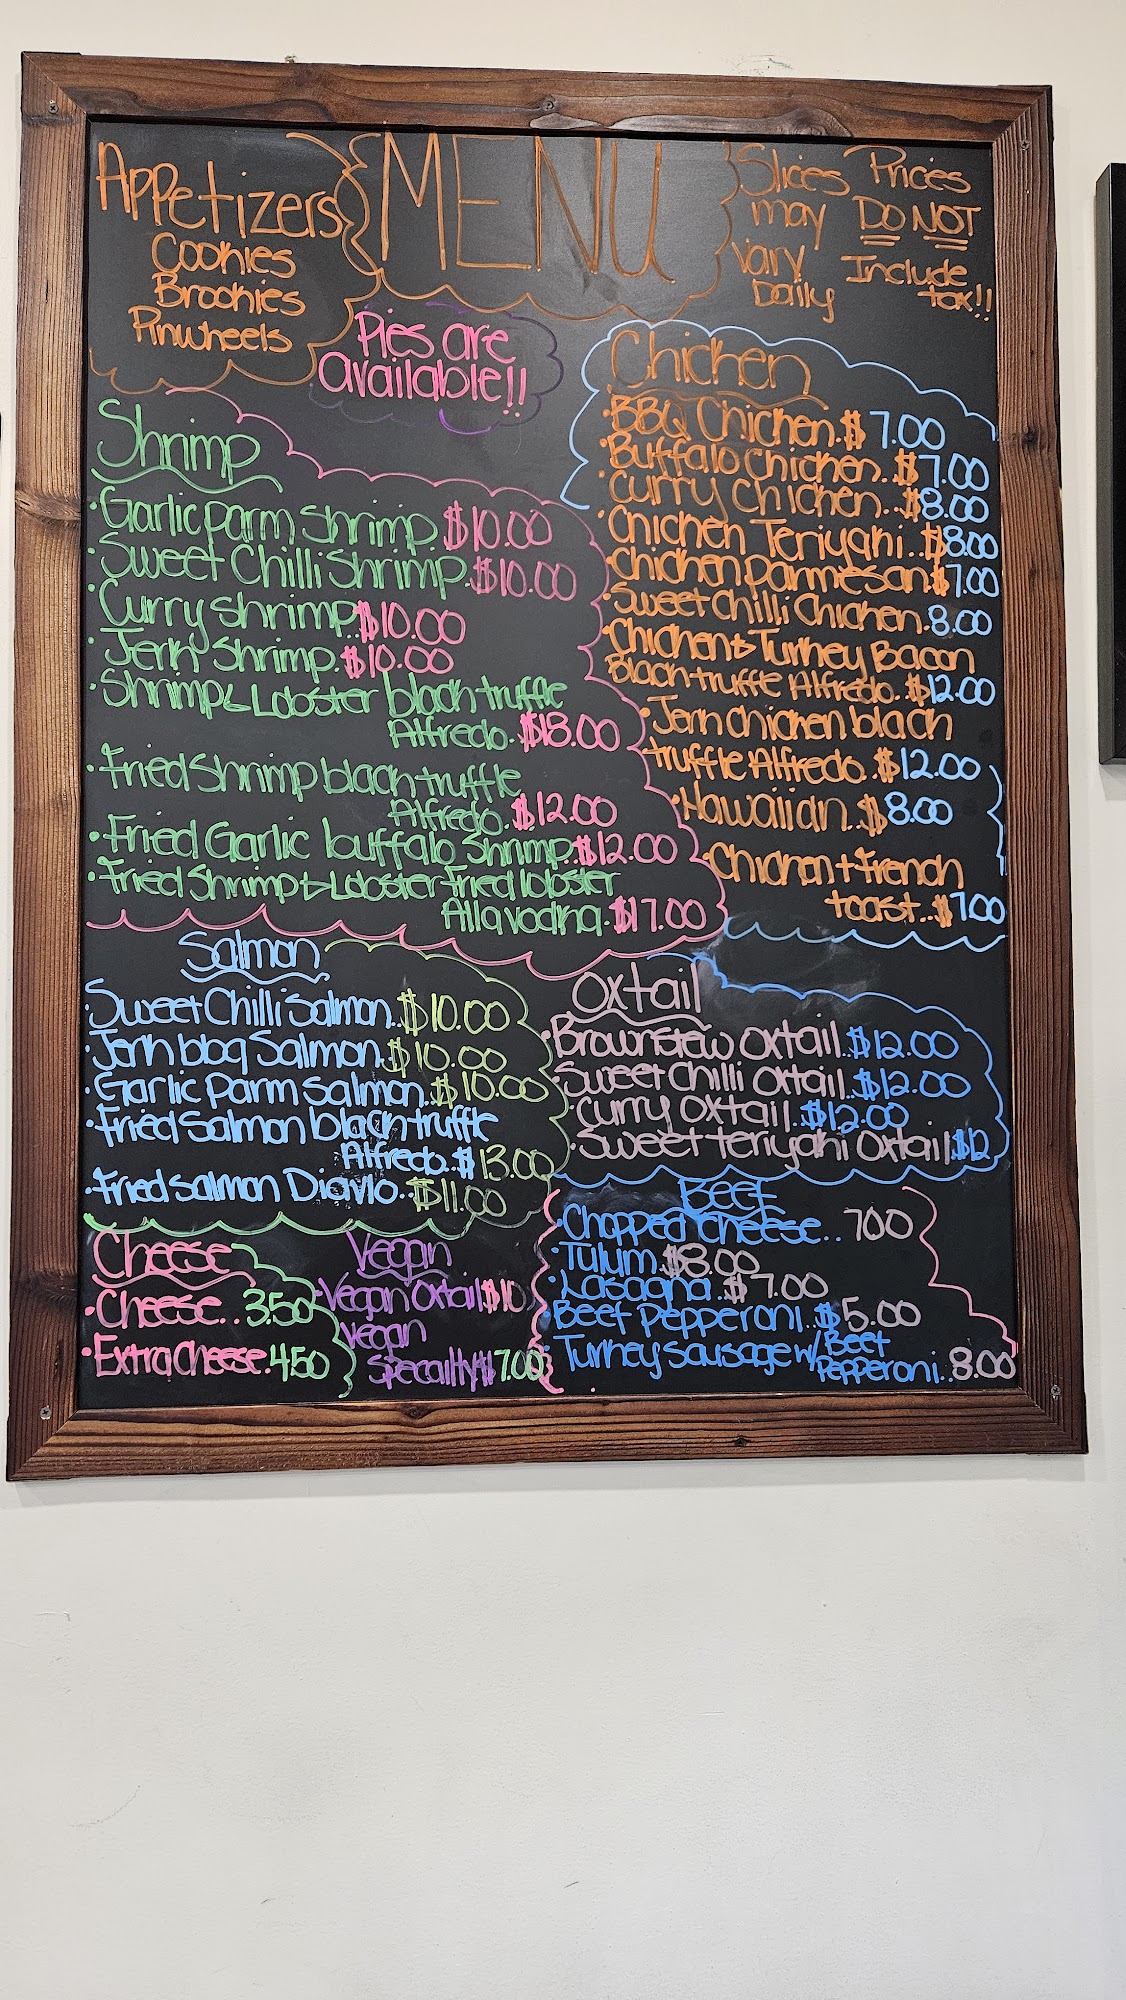 MENU
Appetizers
Cookies
Brookies
Pinwheels
Slices
may
vary
Daily
Prices
DO NOT
Include
tax!!
Pies are
available!!
Shrimp
·Garlic parm shrimp.$10.00
·Sweet Chilli Shrimp.$10.00
·Curry shrimp.$10.00
·Jerk Shrimp.$10.00
·Shrimp & Lobster black truffle
Alfredo.$18.00
·Fried Shrimp black truffle
Alfredo.$12.00
·Fried Garlic buffalo Shrimp.$12.00
·Fried Shrimp & Lobster Fried lobster
Alla vodka.$17.00
Chicken
·BBQ Chicken.$7.00
·Buffalo chicken.$7.00
·Curry Chicken..$8.00
·Chicken Teriyaki..$8.00
·Chicken parmesan.$7.00
·Sweet Chilli Chicken.8.00
·Chicken & Turkey Bacon
Black truffle Alfredo.$12.00
·Jerk chicken black
truffle Alfredo..$12.00
·Hawaiian..$8.00
·Chicken + French
toast..$7.00
Salmon
·Sweet Chilli Salmon..$10.00
·Jerk bbq Salmon.$10.00
·Garlic Parm Salmon..$10.00
·Fried Salmon black truffle
Alfredo.$13.00
·Fried Salmon Diavlo..$11.00
Oxtail
·Brownstew oxtail.$12.00
·Sweet Chilli Oxtail..$12.00
·Curry oxtail.$12.00
·Sweet teriyaki Oxtail $12
Cheese
·Cheese..3.50
·Extra cheese.4.50
Vegan
·Vegan Oxtail $10
·Vegan
Specailty $17.00
Beef
·Chopped cheese..7.00
·Tulum.$8.00
·Lasagna.$7.00
·Beef Pepperoni..$5.00
·Turkey sausage w/ Beef
Pepperoni..8.00